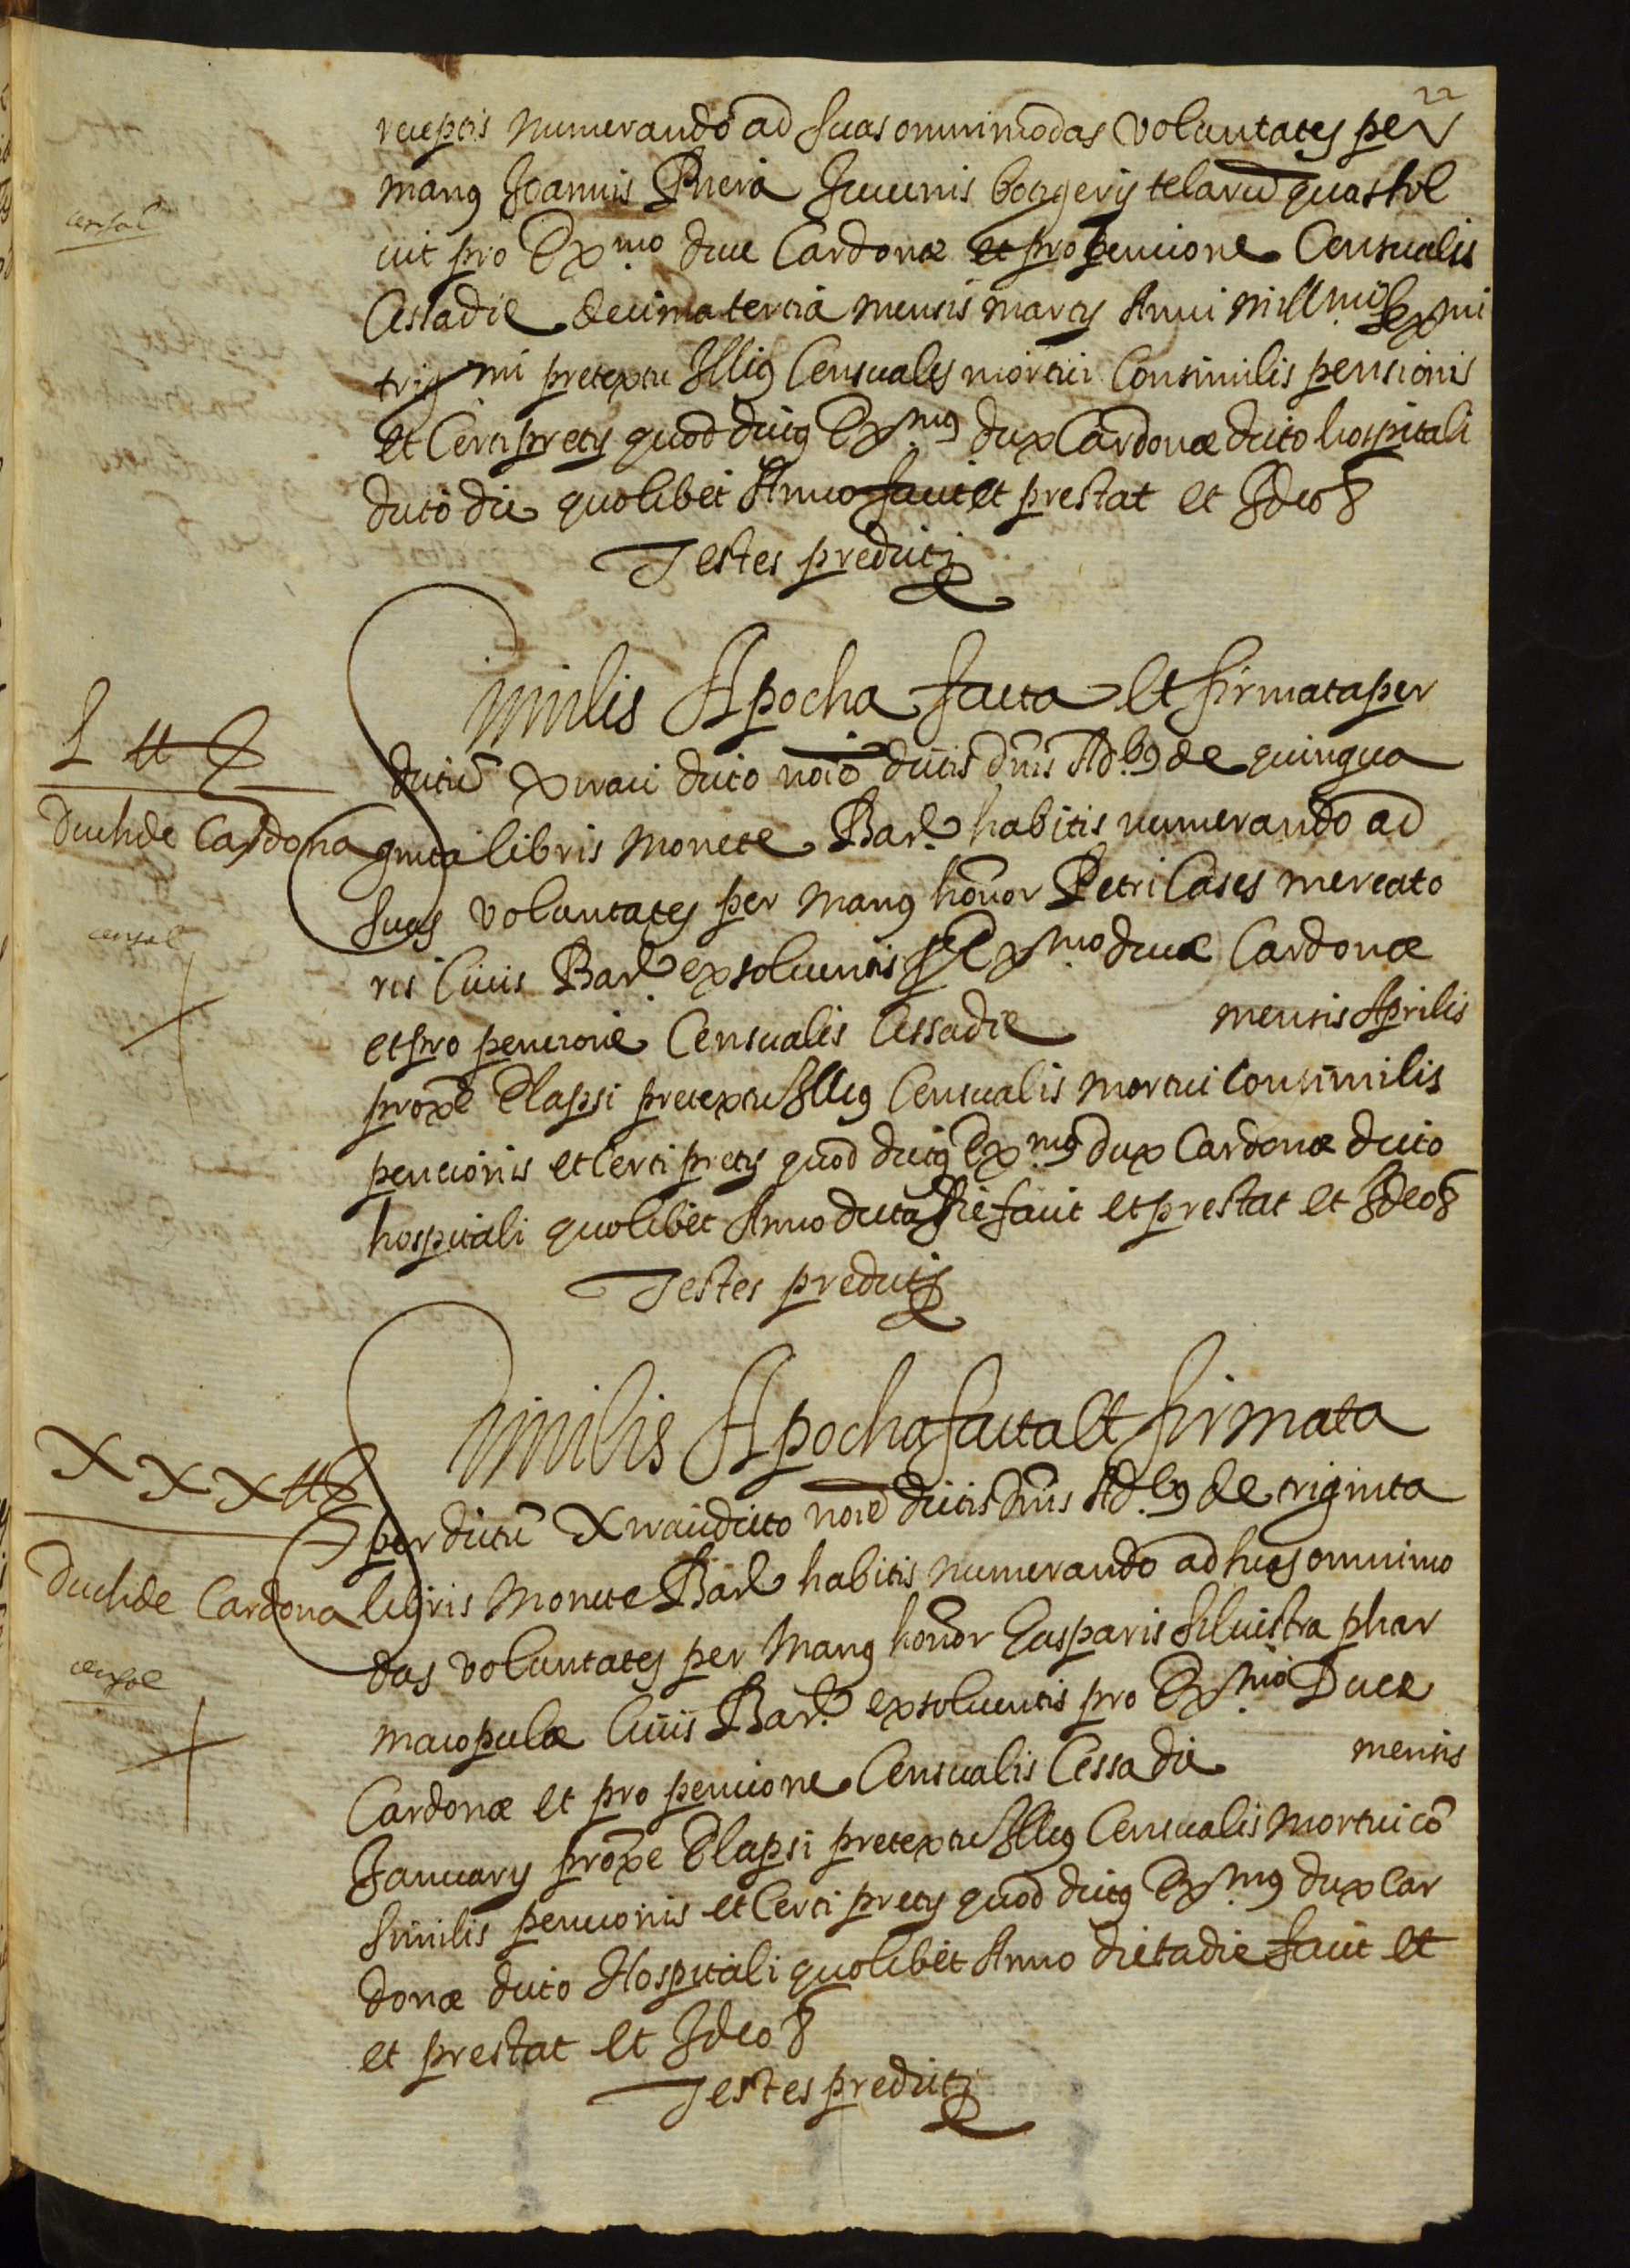 22
receptis numerando ad suas omnimodas voluntates per
manus Joannis Riera Juvenis botigerij telarũ quas sol
vit pro Exmo duce Cardonæ et pro pencione Censualis
Cessa die decima tercia mensis marcij Anni mill.mi sex.mi
trig.mi pretextu Illius Censualis mortui Consimilis pensionis
et Certi precij quod dictus Ex.mus dux Cardonæ dicto hospitali
dicto die quolibet Anno facit et prestat et Ideo &
Testes predicti
censal
Similis Apocha facta et firmata per
L ll S
dictũ Xwavi dicto noiẽ dictis dñis Ad.bus de quinqua
Duch de Cardona
ginta libris monete Bar.e habitis numerando ad
suas voluntates per manus honor Petri Cases mercato
censal
ris Civis Bar.e exsoluentis pro Exmo duce Cardonæ
et pro pencione Censualis Cessa die mensis Aprilis
proxẽ Elapsi pretextu Illius Censualis mortui Consimilis
pencionis et Certi precij quod dictus Ex.mus dux Cardonæ dicto
hospitali quolibet Anno dicta die facit et prestat et Ideo &
Testes predicti
Similis Apocha facta et firmata
XXX ll S
per dictũ Xwavi dicto noiẽ dictis dñis Ad.bus de triginta
Duch de Cardona
libris monete Bar.e habitis numerando ad suas omnimo
das voluntates per manus honor Gasparis Silvistra phar
censal
macopulæ Civis Bar.e exsoluentis pro Ex.mo Duce
Cardonæ et pro pencione Censualis Cessa die mensis
Januarij proxẽ Elapsi pretextu Illius Censualis mortui cõ
similis pencionis et Certi precij quod dictus Ex.mus dux Car
donæ dicto Hospitali quolibet Anno dicta die facit et
et prestat et Ideo &
Testes predicti